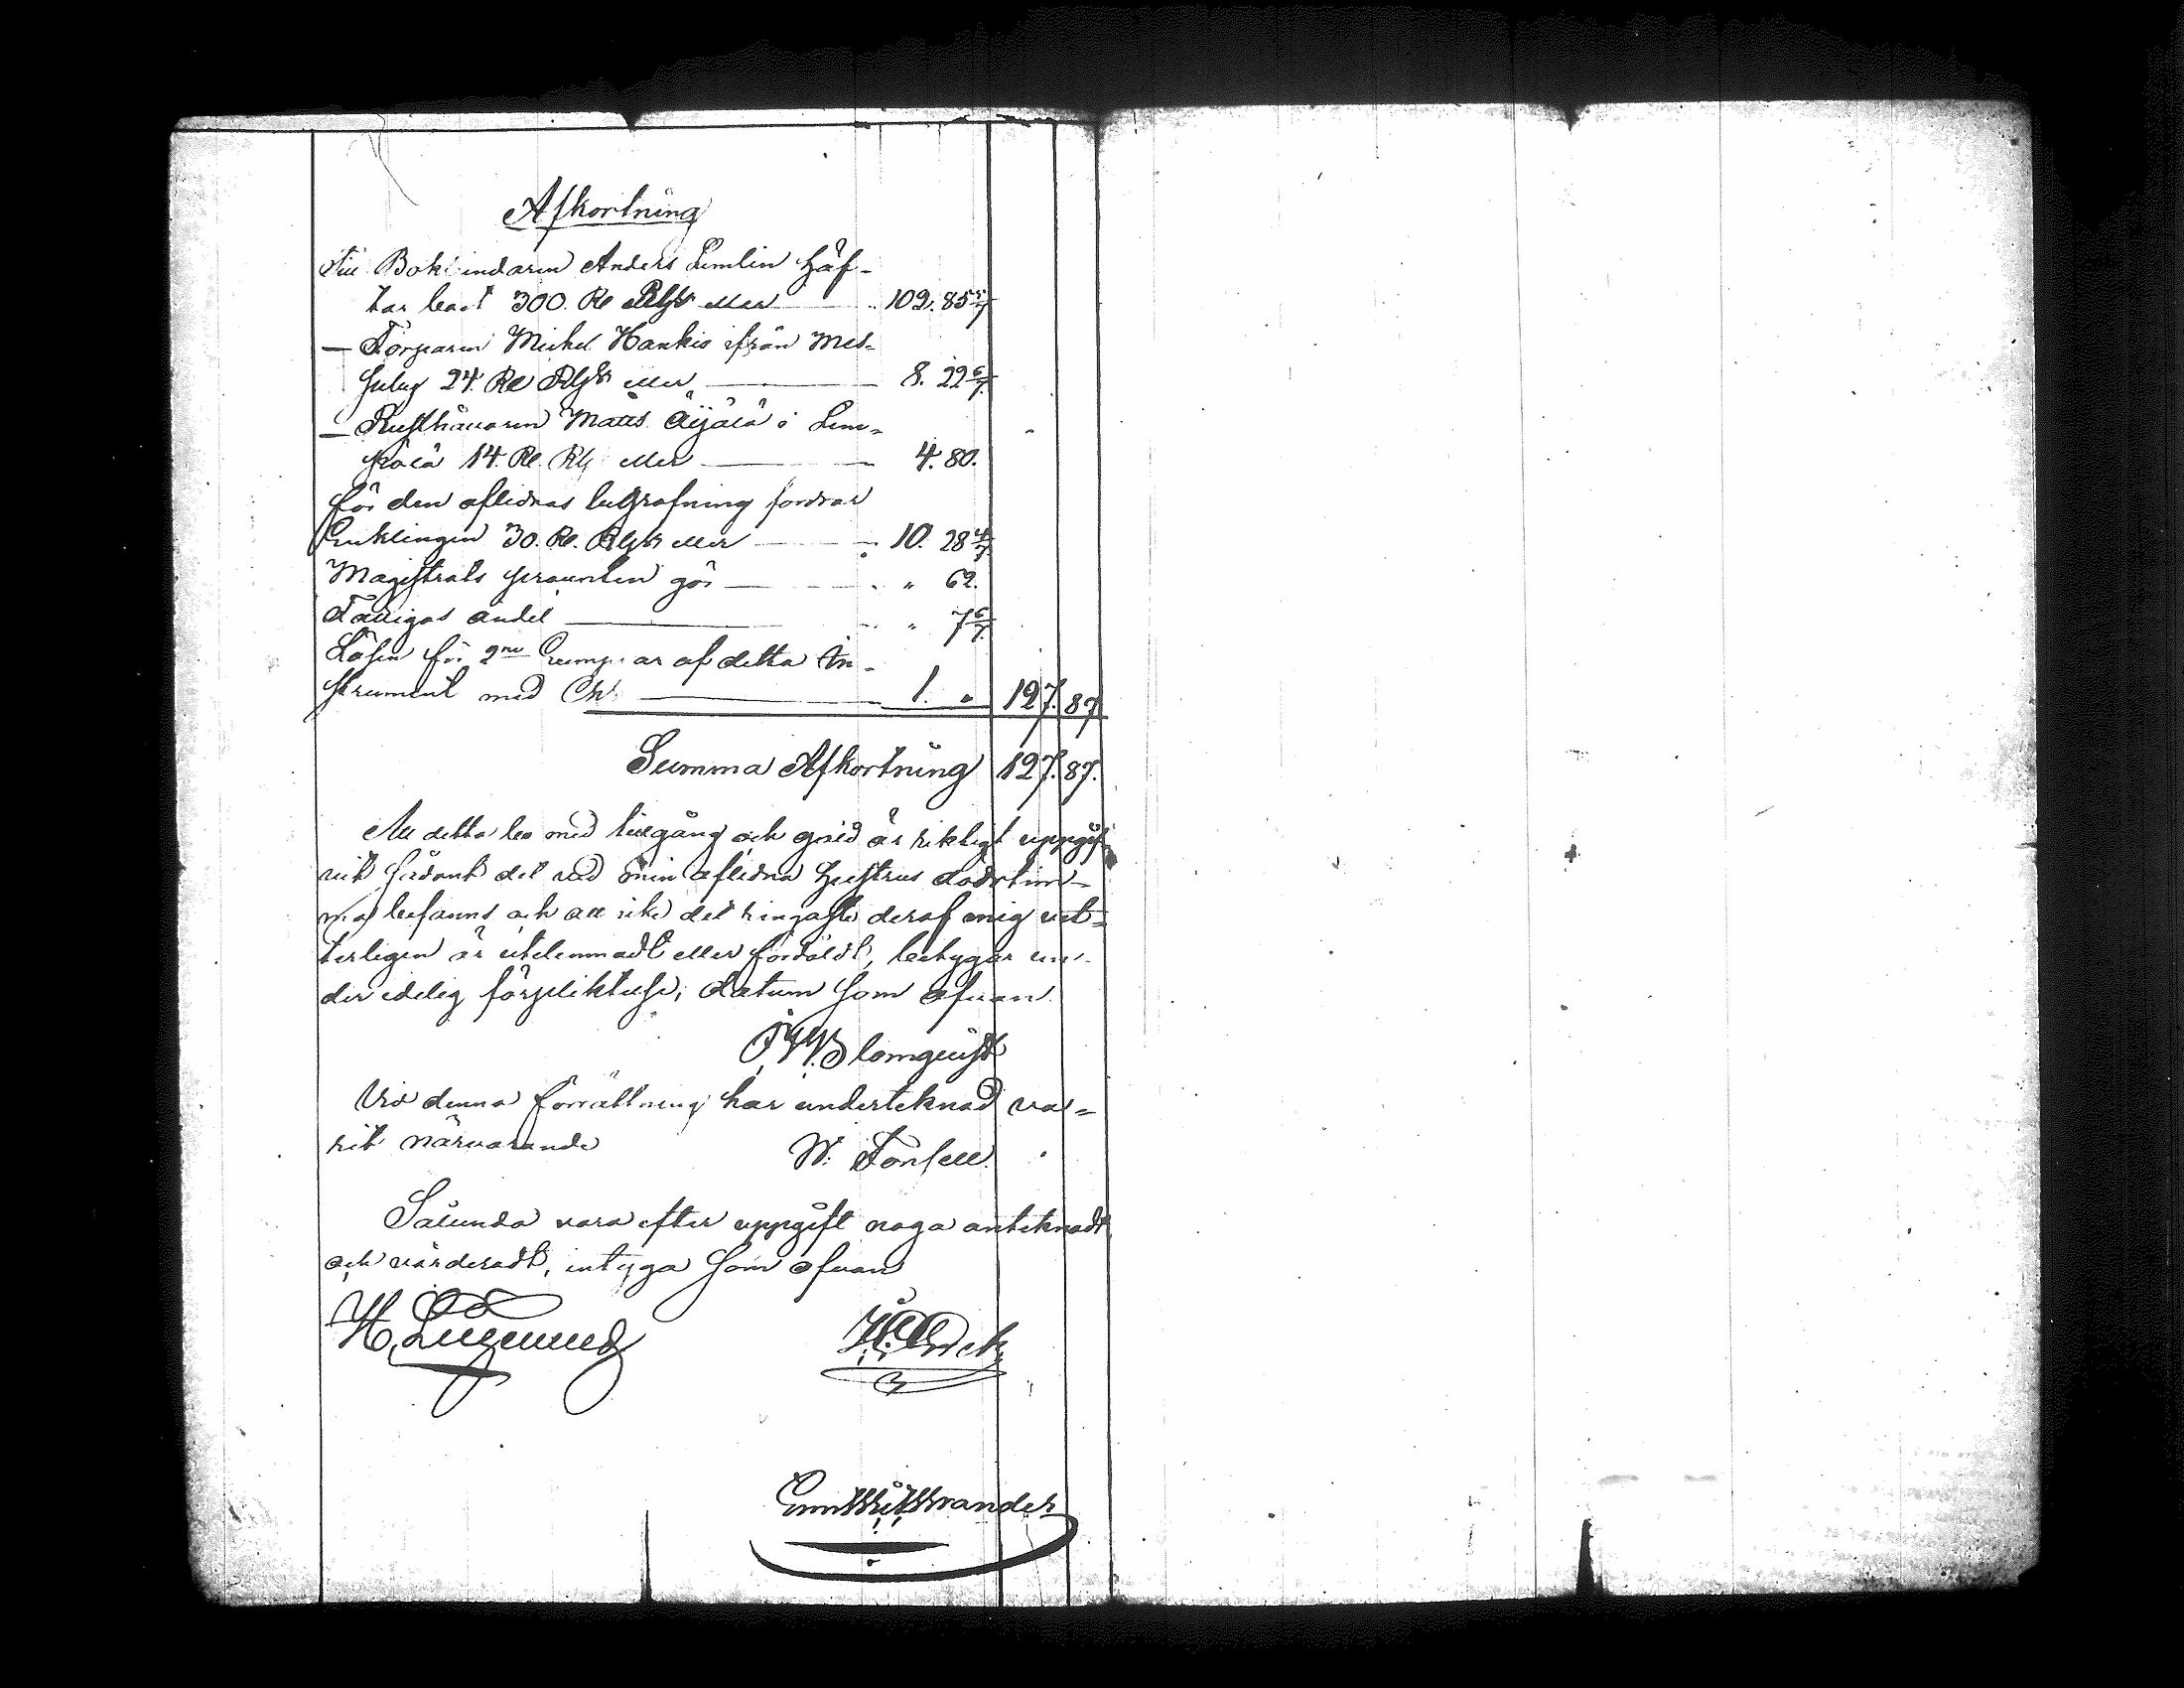 Afkortning
Till Bokbindaren Anders Limlin häf-
tar boet 300. Re Rgs eller 102. 85 5/7
— Torparen Michel Hankis ifrån Mes-
suby 24. Re Rgs eller 8. 22 6/7
— Rusthållaren Matts Äijälä i Lem-
pälä 14. Re. Rgs eller 4. 80.
för den aflidnas begrafning fordrar
Enklingen 30. Re. Rgs eller 10. 28 4/7
Magistrats provnten gör " 62.
Fattigas andel " 7 6/7
Lösen för 2ne Exemplar af detta In-
strument med Ch 1. " 127. 87
Summa Afkortning 127. 87.
All detta bo med tillgång och gäld är riktigt uppgif-
vit sådant det vid min aflidna hustrus dödstim-
ma befanns, och att icke det ringaste deraf mig vet-
terligen är utelemnadt eller fördöldt, betygar un-
der edelig förpliktelse; datum som ofvan.
Blomquist
Vid denna förrättning har undertecknad va-
rit närvarande W. Forsell.
Sålunda vara efter uppgift noga antecknadt
och värderadt, intyga som ofvan